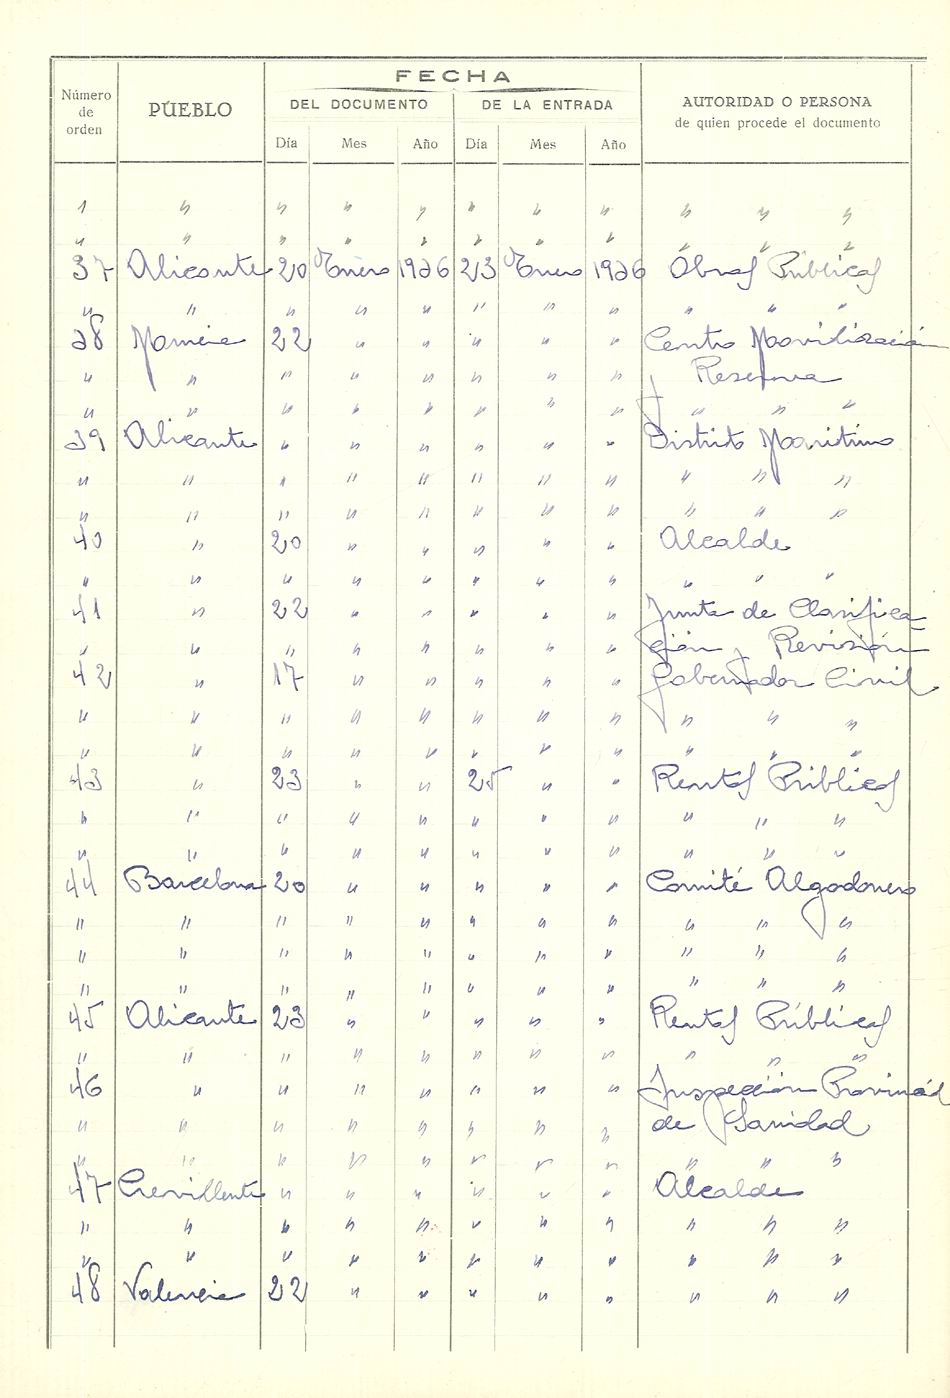 FECHA
Número de orden PUEBLO DEL DOCUMENTO DE LA ENTRADA AUTORIDAD O PERSONA de quien procede el documento
Día Mes Año Día Mes Año
" " " " " " " " " " "
" " " " " " " " " " "
37 Alicante 20 Enero 1926 23 Enero 1926 Obras Públicas
" " " " " " " " " " "
38 Murcia 22 " " " " " Centro Movilización
" " " " " " " " y Reserva
" " " " " " " " " " "
39 Alicante " " " " " " Distrito Marítimo
" " " " " " " " " " "
" " " " " " " " " " "
40 " 20 " " " " " Alcalde
" " " " " " " " " " "
41 " 22 " " " " " Junta de Clasifica-
" " " " " " " " ción y Revisión
42 " 17 " " " " " Gobernador Civil
" " " " " " " " " " "
" " " " " " " " " " "
43 " 23 " " 25 " " Rentas Públicas
" " " " " " " " " " "
" " " " " " " " " " "
44 Barcelona 20 " " " " " Comité Algodonero
" " " " " " " " " " "
" " " " " " " " " " "
" " " " " " " " " " "
45 Alicante 23 " " " " " Rentas Públicas
" " " " " " " " " " "
46 " " " " " " " Inspección Provincial
" " " " " " " " de Sanidad
" " " " " " " " " " "
47 Crevillente " " " " " " Alcalde
" " " " " " " " " " "
" " " " " " " " " " "
48 Valencia 22 " " " " " " " "